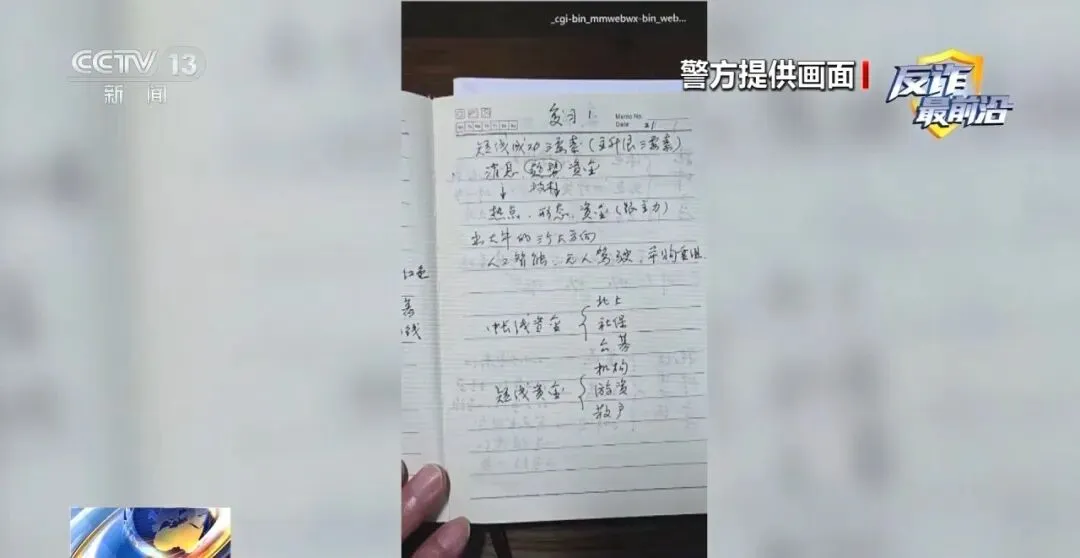 _cgi-bin_mmwebwx-bin_web...
CCTV 13
新闻
警方提供画面
反诈
最前沿
复习1
Memo No.
Date
短线成功三要素(主升浪三要素)
消息、趋势、资金
热点、形态、资金(跟主力)
出大牛的三个大方向
人工智能、无人驾驶、并购重组
中长线资金
北上
社保
公募
短线资金
机构
游资
散户
红色
募
钱